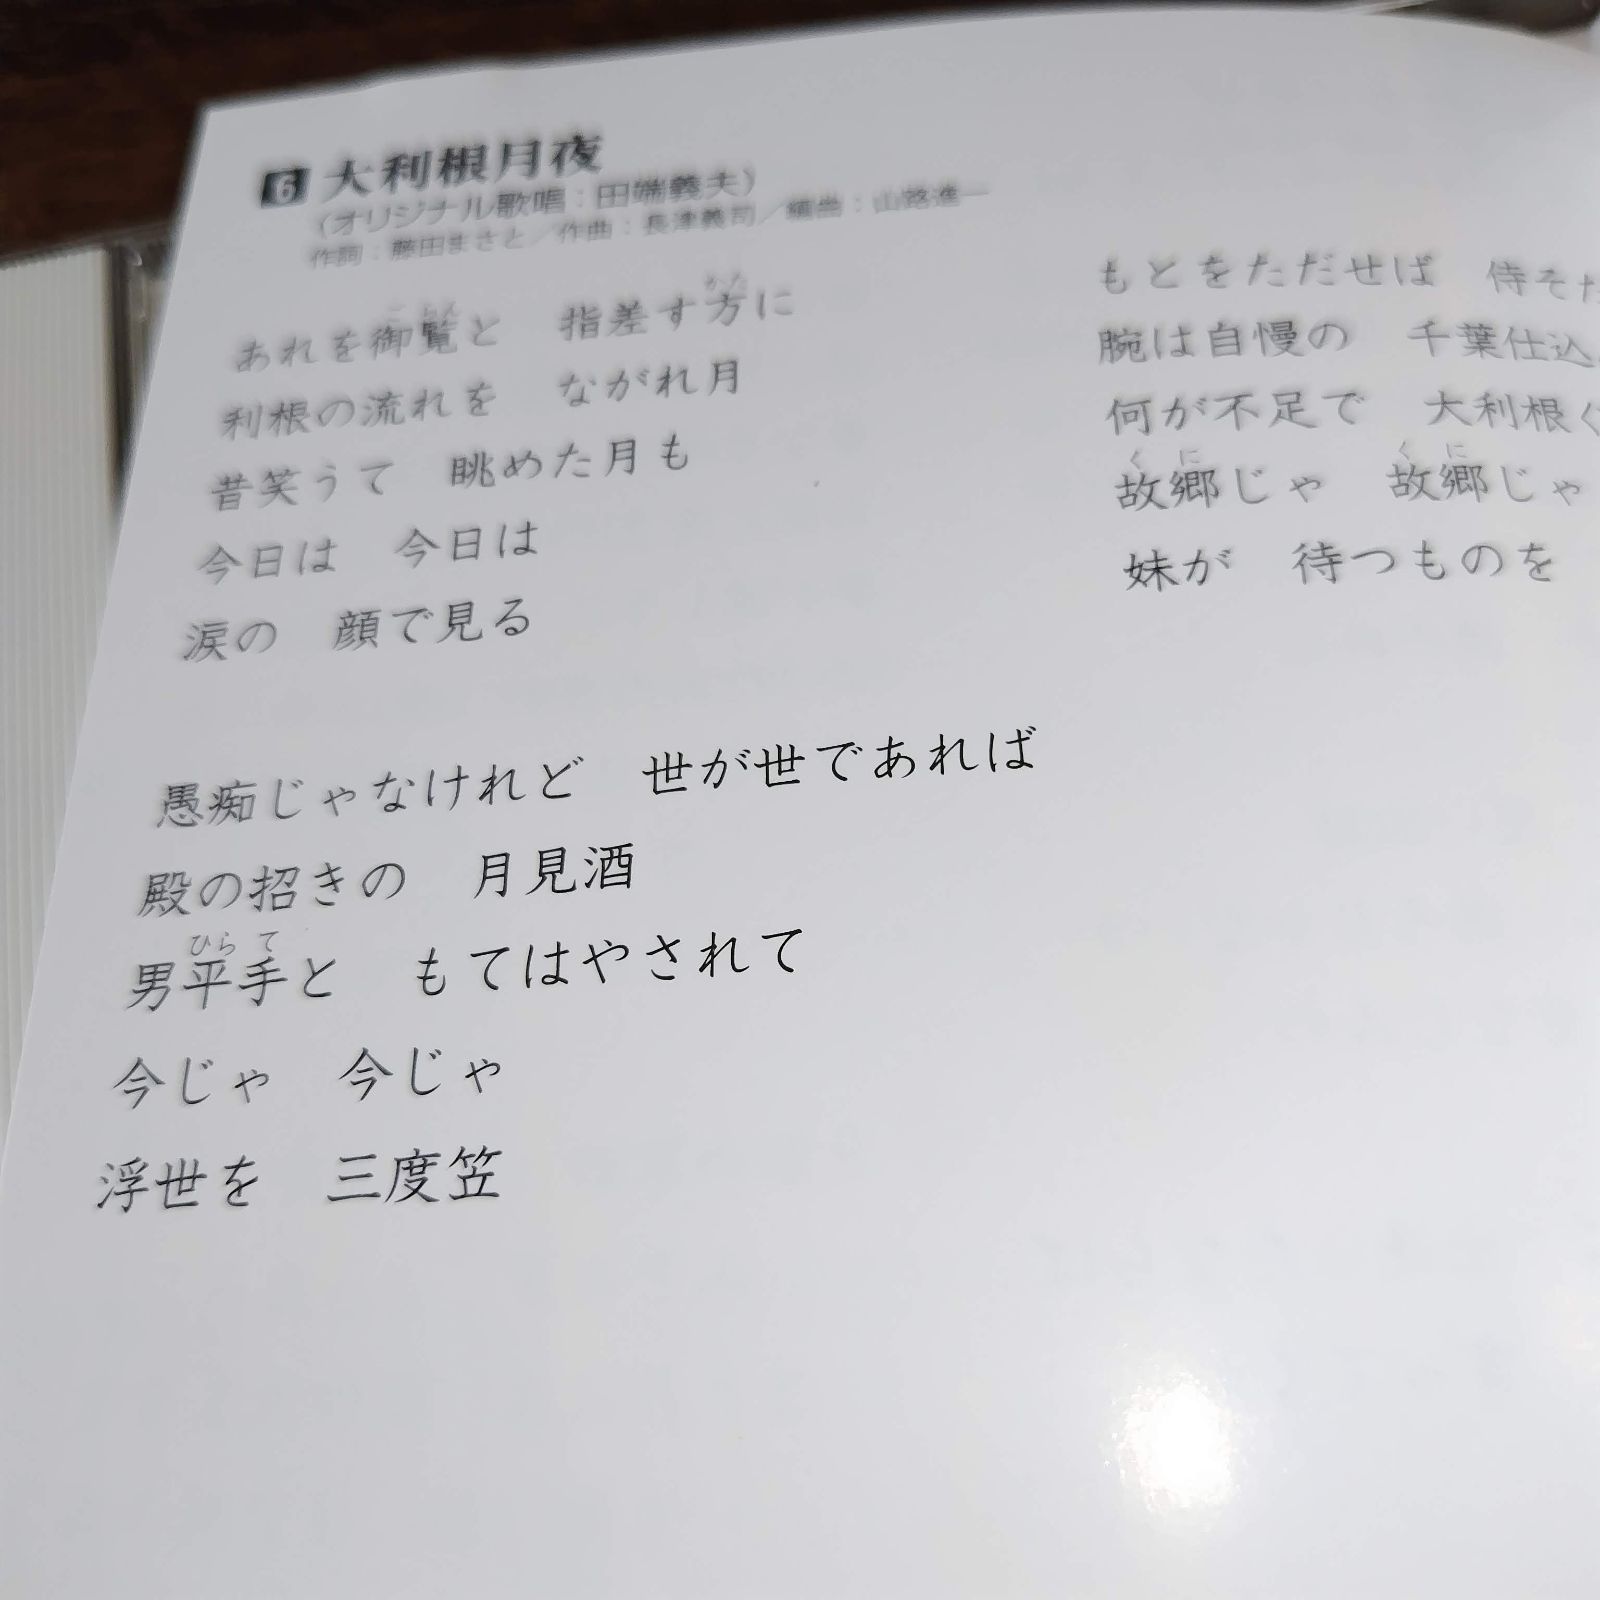 6 大利根月夜
(オリジナル歌唱：田端義夫)
作詞：藤田まさと／作曲：長津義司／編曲：山路進一
あれを御覧と　指差す方に
利根の流れを　ながれ月
昔笑うて　眺めた月も
今日は　今日は
涙の　顔で見る
愚痴じゃなけれど　世が世であれば
殿の招きの　月見酒
男平手と　もてはやされて
今じゃ　今じゃ
浮世を　三度笠
もとをただせば　侍そだ
腕は自慢の　千葉仕込
何が不足で　大利根く
故郷じゃ　故郷じゃ
妹が　待つものを